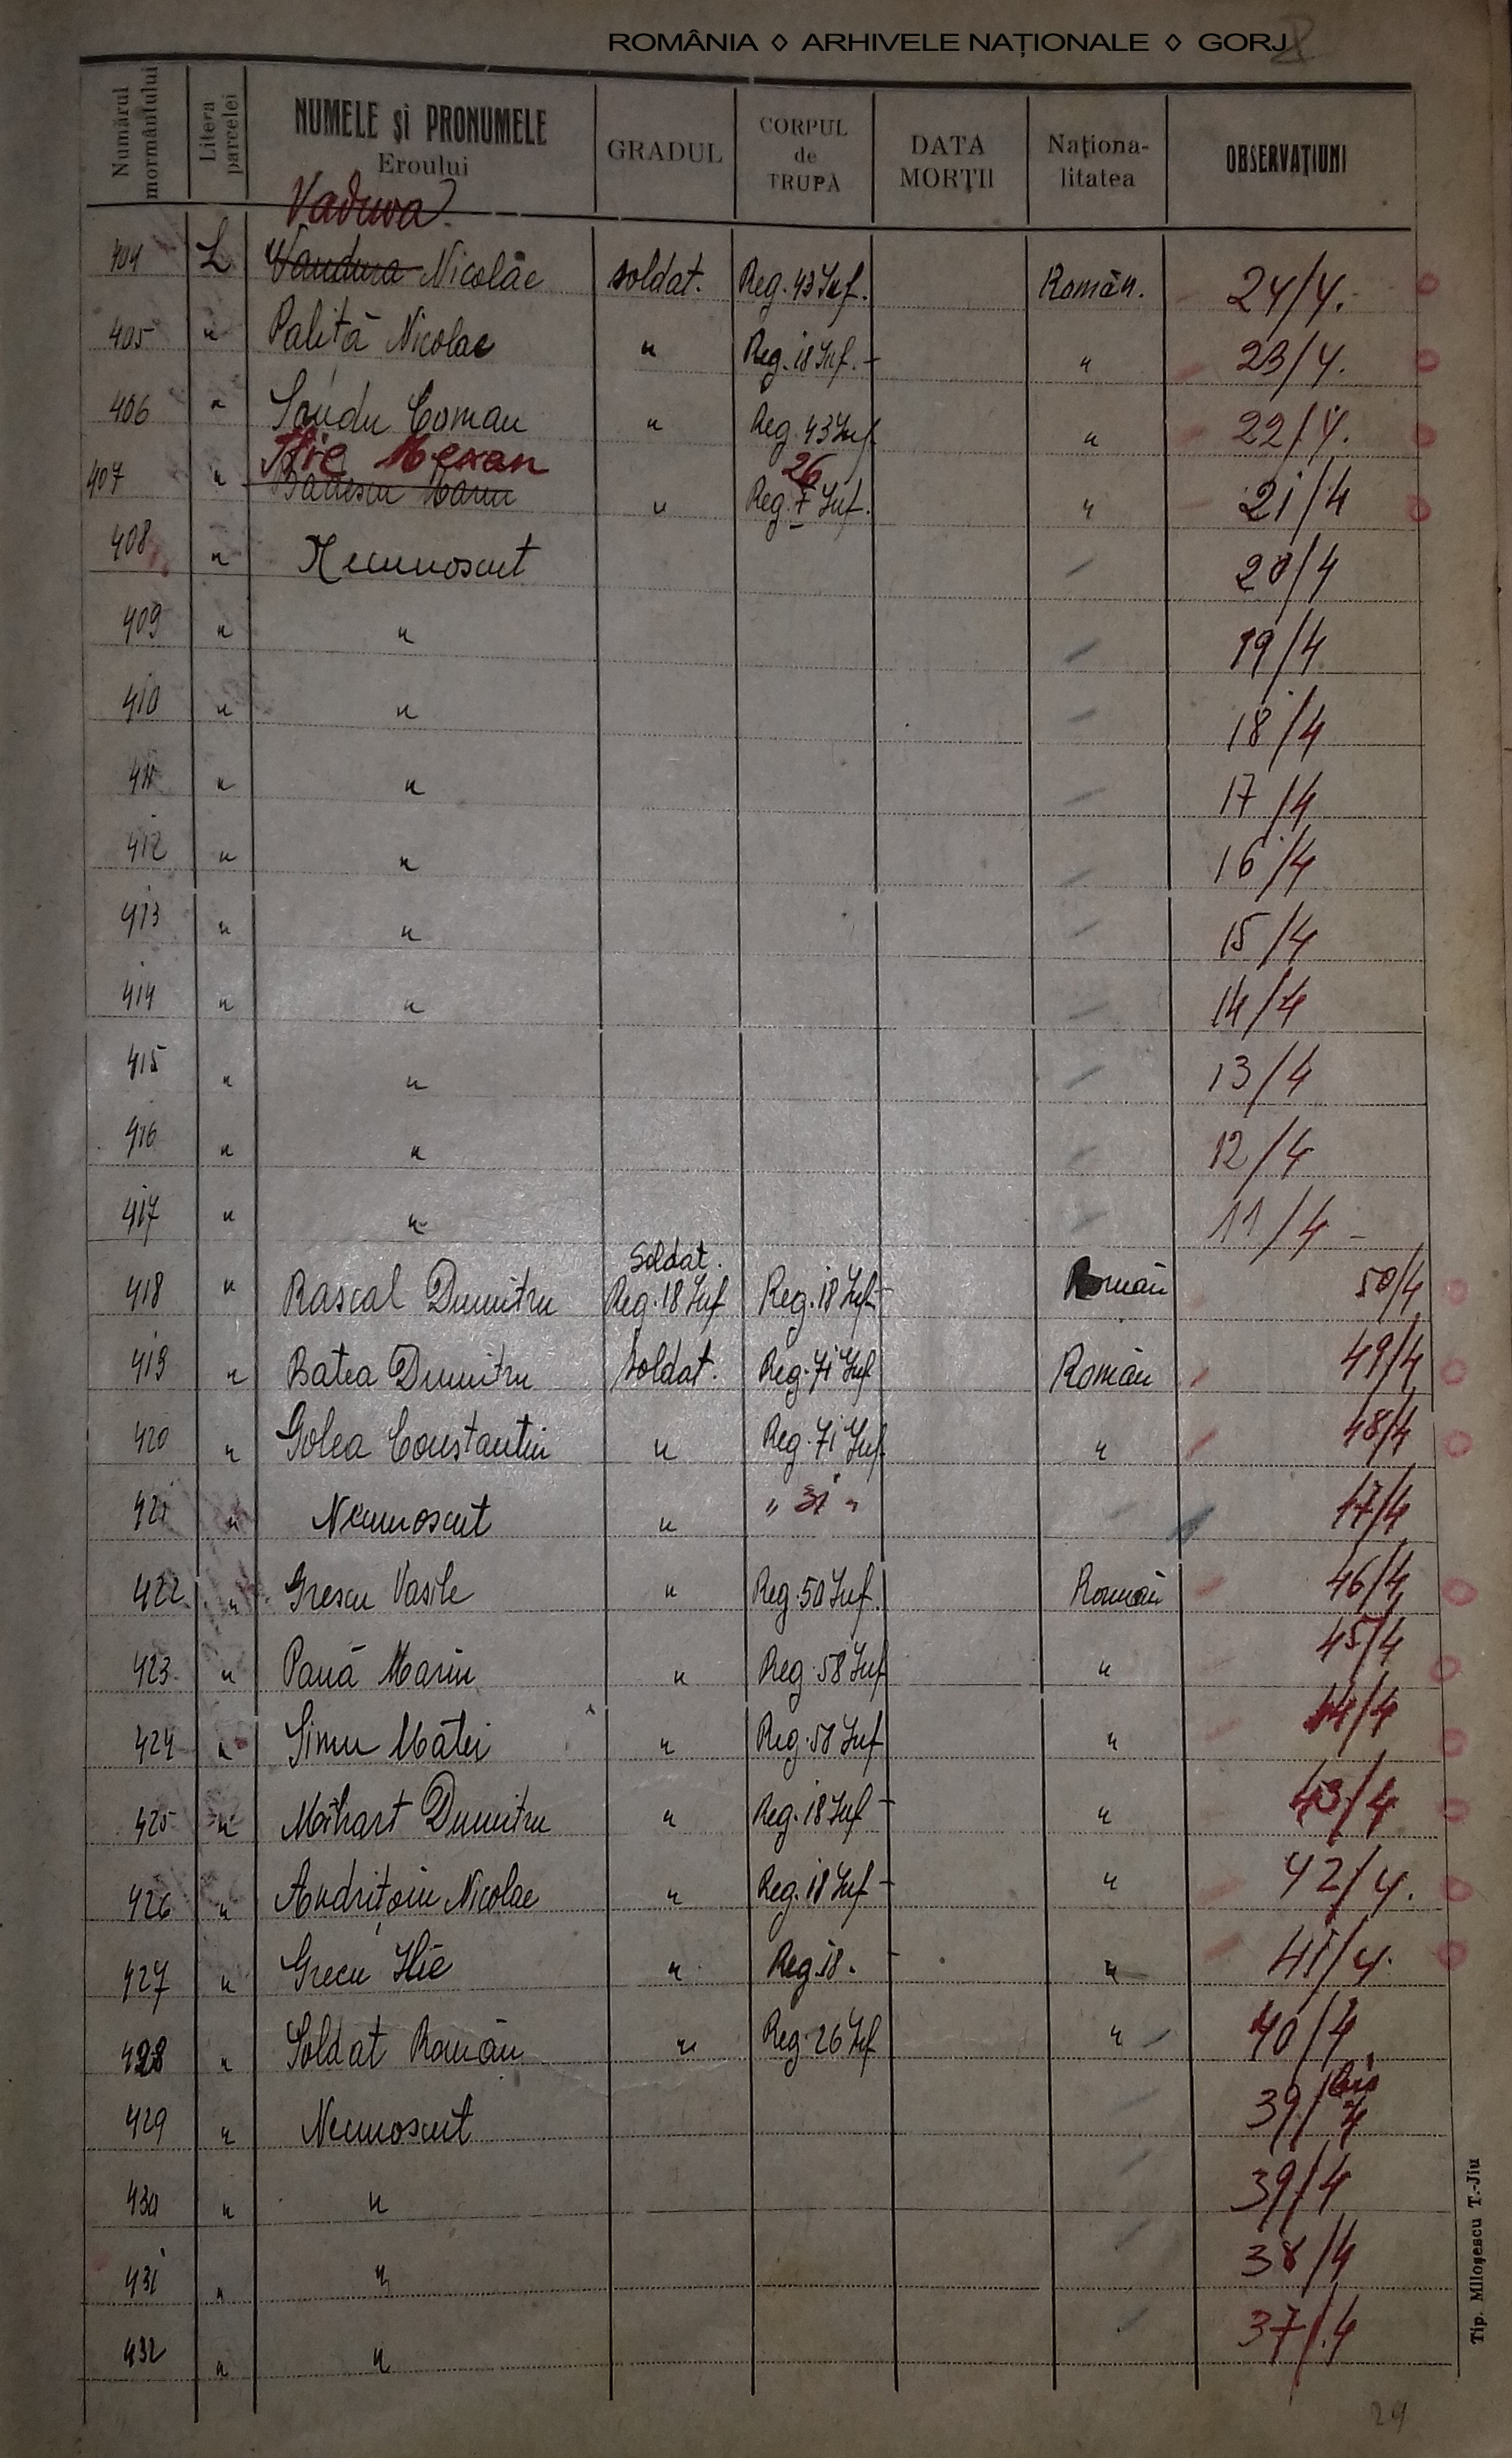 ROMÂNIA ◊ ARHIVELE NAȚIONALE ◊ GORJ
Numărul mormântului | Litera parcelei | NUMELE și PRONUMELE Eroului | GRADUL | CORPUL de TRUPĂ | DATA MORȚII | Naționa-litatea | OBSERVAȚIUNI
Vaduva
404 L Vanduva Nicolae soldat. Reg. 43 Inf. Român. 24/4.
405 " Paliță Nicolae " Reg. 18 Inf. - " 23/4.
406 " Sandu Coman " Reg. 43 Inf " 22/4.
Ilie 26
407 " Marin " Reg. 7 Inf. " 21/4
408 " Necunoscut 20/4
409 " " 19/4
410 " " 18/4
411 " " 17/4
412 " " 16/4
413 " " 15/4
414 " " 14/4
415 " " 13/4
416 " " 12/4
417 " " 11/4 -
Soldat.
418 " Rascal Dumitru Reg. 18 Inf Reg. 18 Inf - Român 50/4
419 " Batea Dumitru Soldat. Reg. 71 Inf Român 49/4
420 " Golea Constantin " Reg. 71 Inf " 48/4
421 " Necunoscut " " 31 " 47/4
422 " Grescu Vasile " Reg. 50 Inf. Român 46/4
423 " Pană Marin " Reg. 58 Inf " 45/4
424 " Simu Matei " Reg. 58 Inf " 44/4
425 " Mihart Dumitru " Reg. 18 Inf - " 43/4
426 " Andrițoiu Nicolae " Reg. 18 Inf - " 42/4.
427 " Grecu Ilie " Reg. 18. - " 41/4.
428 " Soldat Român " Reg. 26 Inf " 40/4
429 " Necunoscut 39/4 bis
430 " " 39/4
431 " " 38/4
432 " " 37/4
Tip. Miloșescu T.-Jiu
29